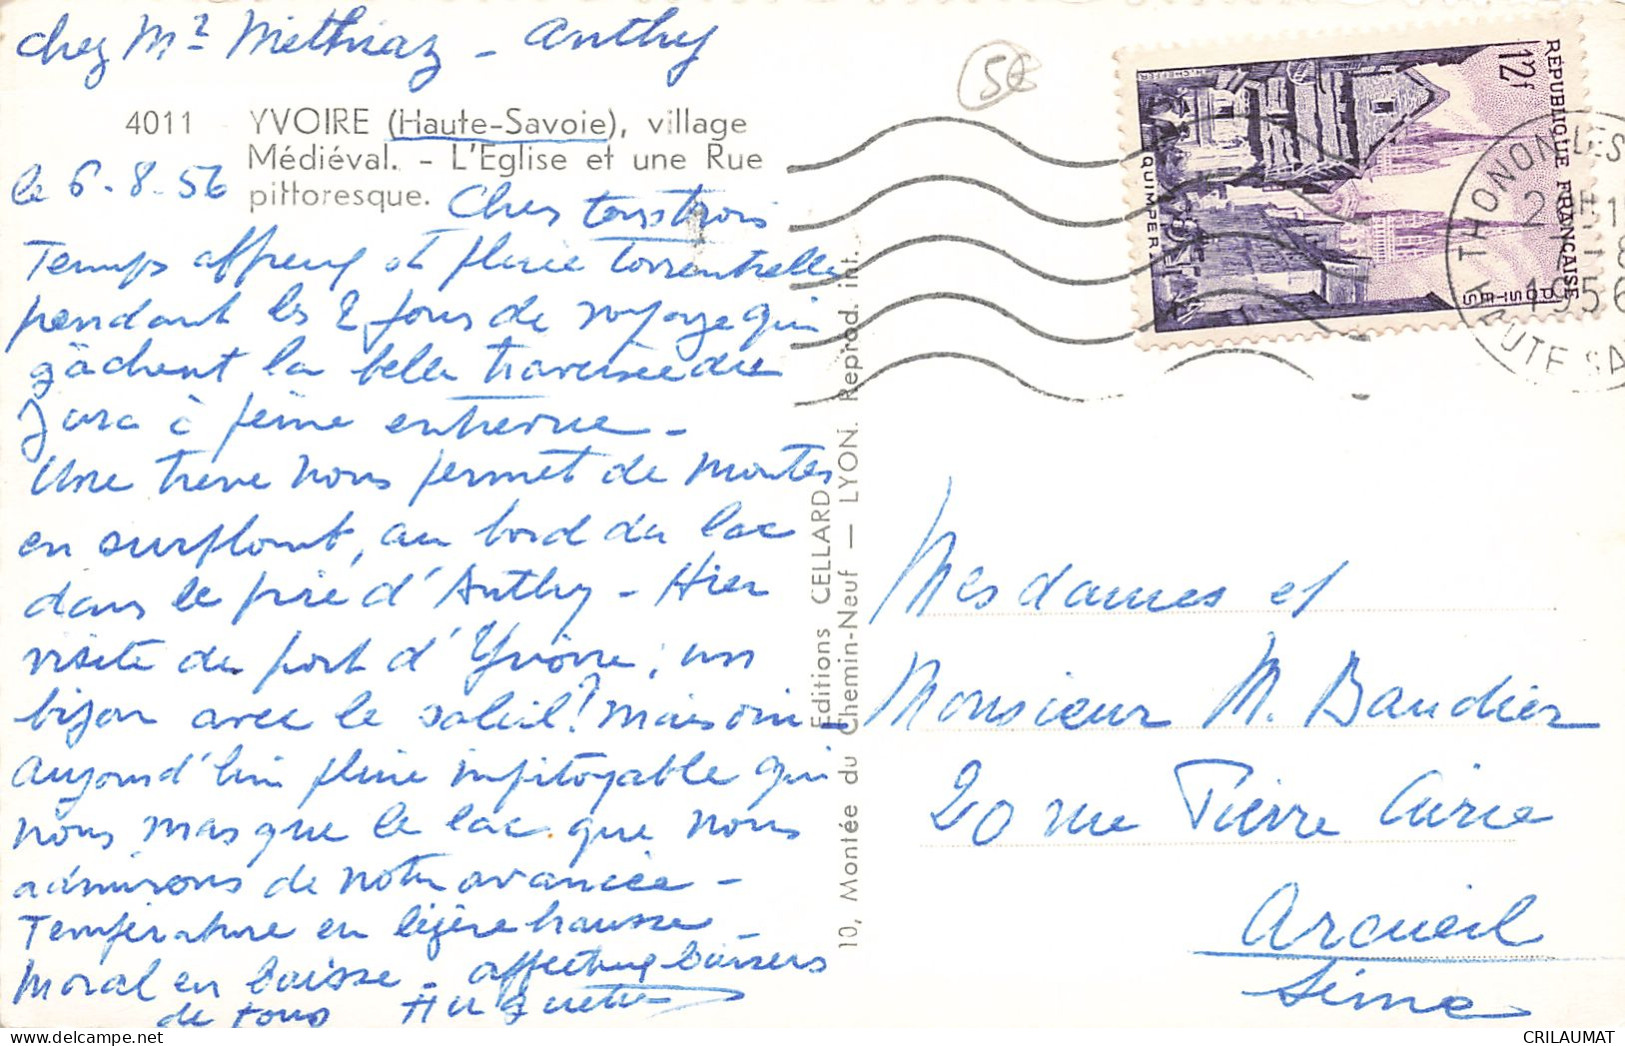 chez Mr Méthiaz - Anthy
4011 YVOIRE (Haute-Savoie), village
Médiéval. - L'Eglise et une Rue
pittoresque.
le 6-8-56
Chers tous trois
Temps affreux et pluie torrentielle
pendant les 2 jours de voyage qui
gâchent la belle traversée du
Jura à peine entrevue -
Une trève nous permet de monter
en surplomb, au bord du lac
dans le pré d'Anthy - Hier
visite du port d'Yvoire, un
bijou avec le soleil! Mais
Aujourd'hui pluie impitoyable qui
nous masque le lac que nous
admirons de notre
Température en légère hausse -
Moral en baisse - affectueux baisers
de tous Huguette
Editions CELLARD
10, Montée du Chemin-Neuf — LYON. Reprod. int.
5€
12f
RÉPUBLIQUE FRANÇAISE
POSTES
QUIMPER
H. CHEFFER
THONON LES
1956
HAUTE SA
Mesdames et
Monsieur M. Baudier
20 rue Pierre Curie
Arcueil
Seine
CRILAUMAT